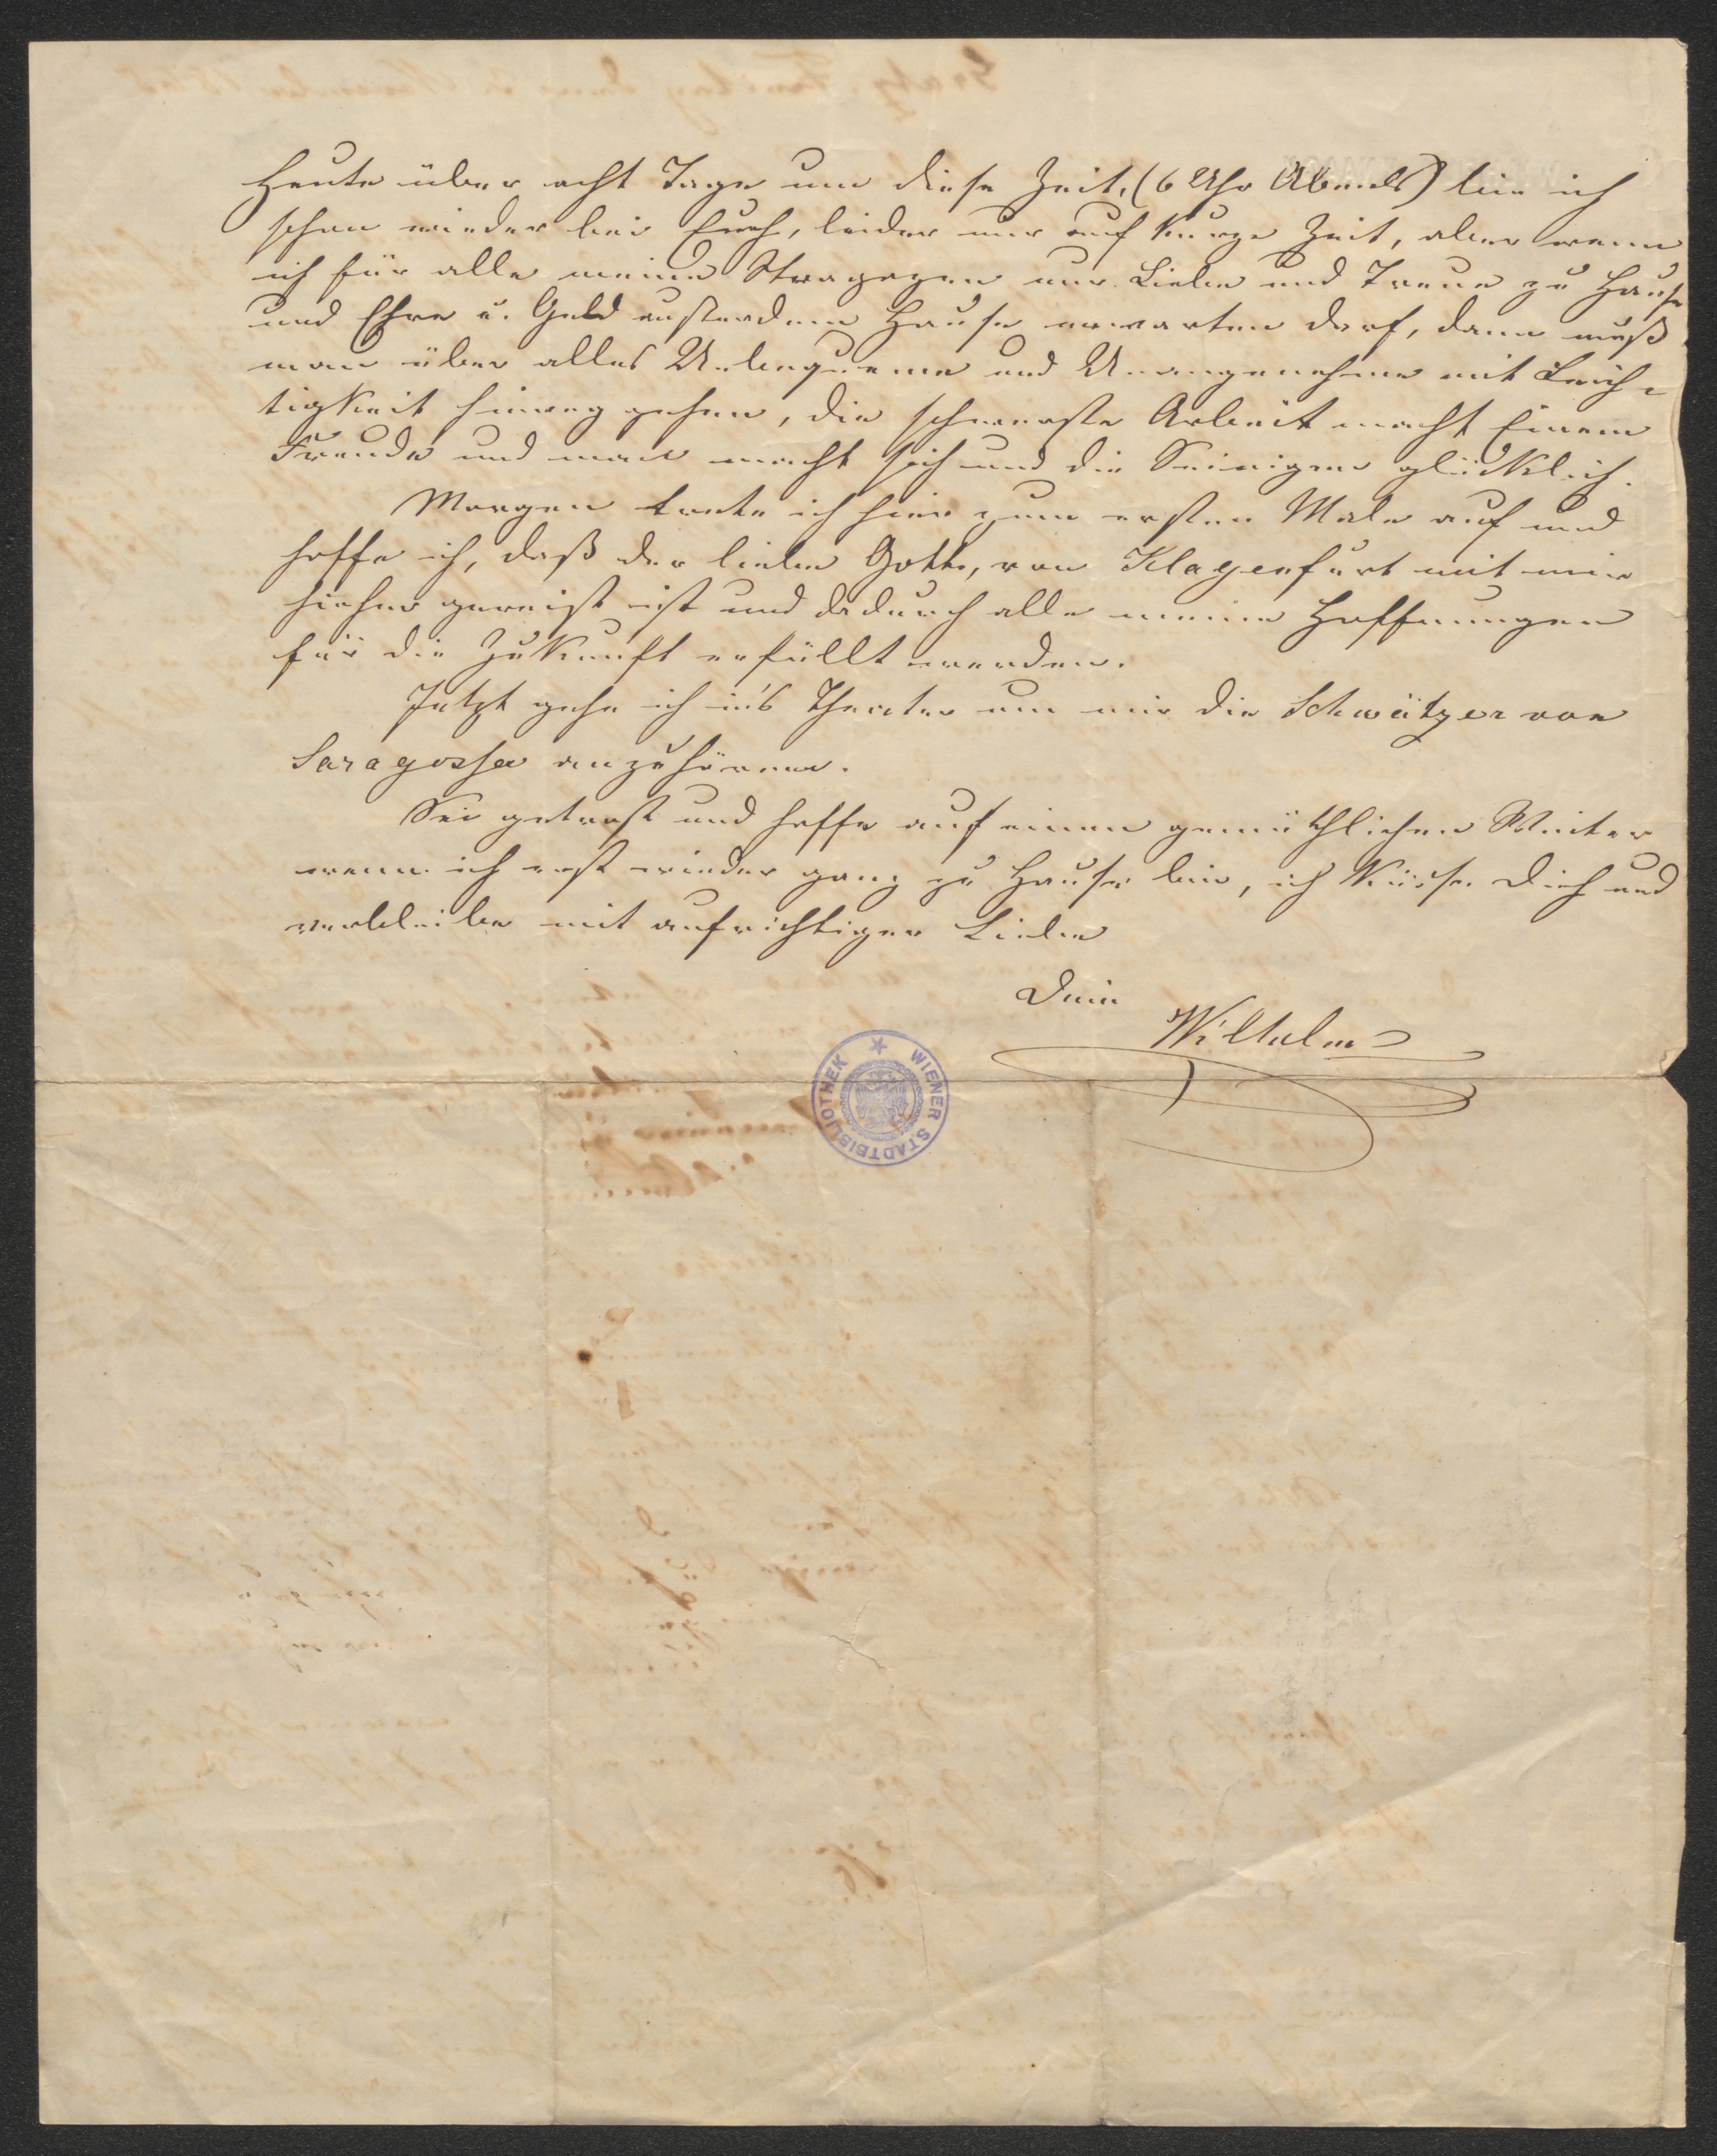 Heute über acht Tage um diese Zeit, (6 Uhr Abends) bin ich
schon wieder bei Euch, leider nur auf kurze Zeit, aber wenn
ich für alle meine Strapazen nur Liebe und Treue zu Hause
und Ehre u. Geld außerdem Hause erwarten darf, dann muß
man über alles Unbequeme und Unangenehme mit Leich-
tigkeit hinweg gehen, die schwerste Arbeit macht Einem
Freude und man macht sich und die Seinigen glücklich.
Morgen trete ich hier zum ersten Male auf und
hoffe ich, daß der liebe Gott, von Klagenfurt mit mir
hieher gereist ist und dadurch alle meine Hoffnungen
für die Zukunft erfüllt werden.
Jetzt gehe ich in's Theater um mir die Schwätzer von
Saragossa anzuhören.
Sei getrost und hoffe auf einen gemüthlichen Winter
wenn ich erst wieder ganz zu Hause bin, ich küsse Dich und
verbleibe mit aufrichtiger Liebe
Dein
Wilhelm
WIENER STADTBIBLIOTHEK